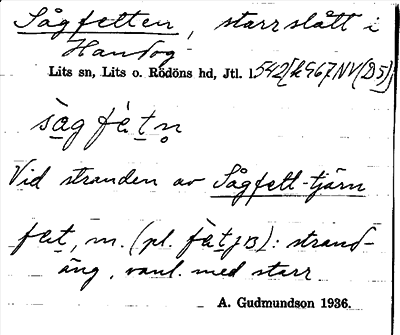 Sågfetten, starrslått i
Handog
Lits sn, Lits o. Rödöns hd, Jtl. l. 542[2467NV(D5)]
sàg fèt n̥
Vid stranden av Sågfett-tjärn
fæt, m. (pl.
): strand-
äng, vanl. med starr
A. Gudmundson 1936.